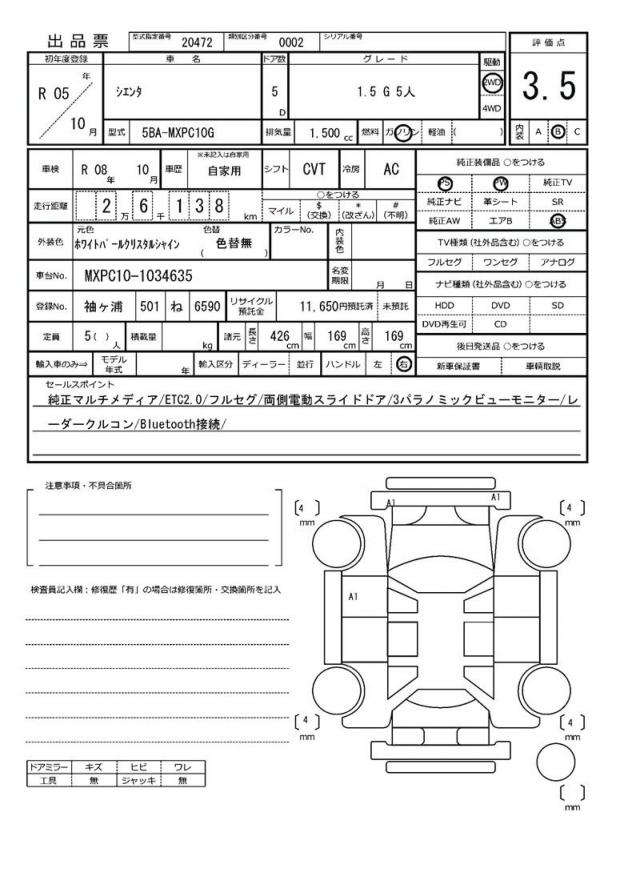 出品票 型式指定番号 20472 類別区分番号 0002 シリアル番号
評価点
3.5
初年度登録 車名 ドア数 グレード 駆動
R 05 年 10 月 シエンタ 5 D 1.5 G 5人 2WD 4WD
型式 5BA-MXPC10G 排気量 1,500 cc 燃料 ガソリン 軽油 ( )
内装 A B C
車検 R 08 年 10 月 車歴 ※未記入は自家用 自家用 シフト CVT 冷房 AC
走行距離 2 万 6 千 1 3 8 km
○をつける
マイル $ (交換) * (改ざん) # (不明)
外装色 元色 ホワイトパールクリスタルシャイン 色替 ( 色替無 ) カラーNo. 内装色
車台No. MXPC10-1034635 名変期限 月 日
登録No. 袖ヶ浦 501 ね 6590 リサイクル預託金 11,650円預託済 未預託
定員 5( ) 人 積載量 kg 諸元 長さ 426 cm 幅 169 cm 高さ 169 cm
輸入車のみ⇒ モデル年式 年 輸入区分 ディーラー 並行 ハンドル 左 右
純正装備品 ○をつける
PS PW 純正TV
純正ナビ 革シート SR
純正AW エアB ABS
TV種類 (社外品含む) ○をつける
フルセグ ワンセグ アナログ
ナビ種類 (社外品含む) ○をつける
HDD DVD SD
DVD再生可 CD
後日発送品 ○をつける
新車保証書 車輌取説
セールスポイント
純正マルチメディア/ETC2.0/フルセグ/両側電動スライドドア/3パラノミックビューモニター/レ
ーダークルコン/Bluetooth接続/
注意事項・不具合箇所
検査員記入欄:修復歴「有」の場合は修復箇所・交換箇所を記入
ドアミラー キズ ヒビ ワレ
工具 無 ジャッキ 無
A1 A1
[ 4 ] mm [ 4 ] mm
A1
[ 4 ] mm [ 4 ] mm
[ ] mm